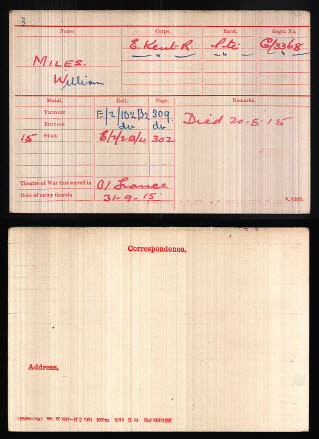 3
Name. Corps. Rank. Regtl. No.
MILES. E. Kent R Pte G/3368
William
Medal. Roll. Page. Remarks.
VICTORY E/2/102B2 309 Died 20-8-15
BRITISH do do
15 STAR E/2/2B/4 302
Theatre of War first served in (1) France
Date of entry therein 31-9-15
K. 1380.
Correspondence.
Address.